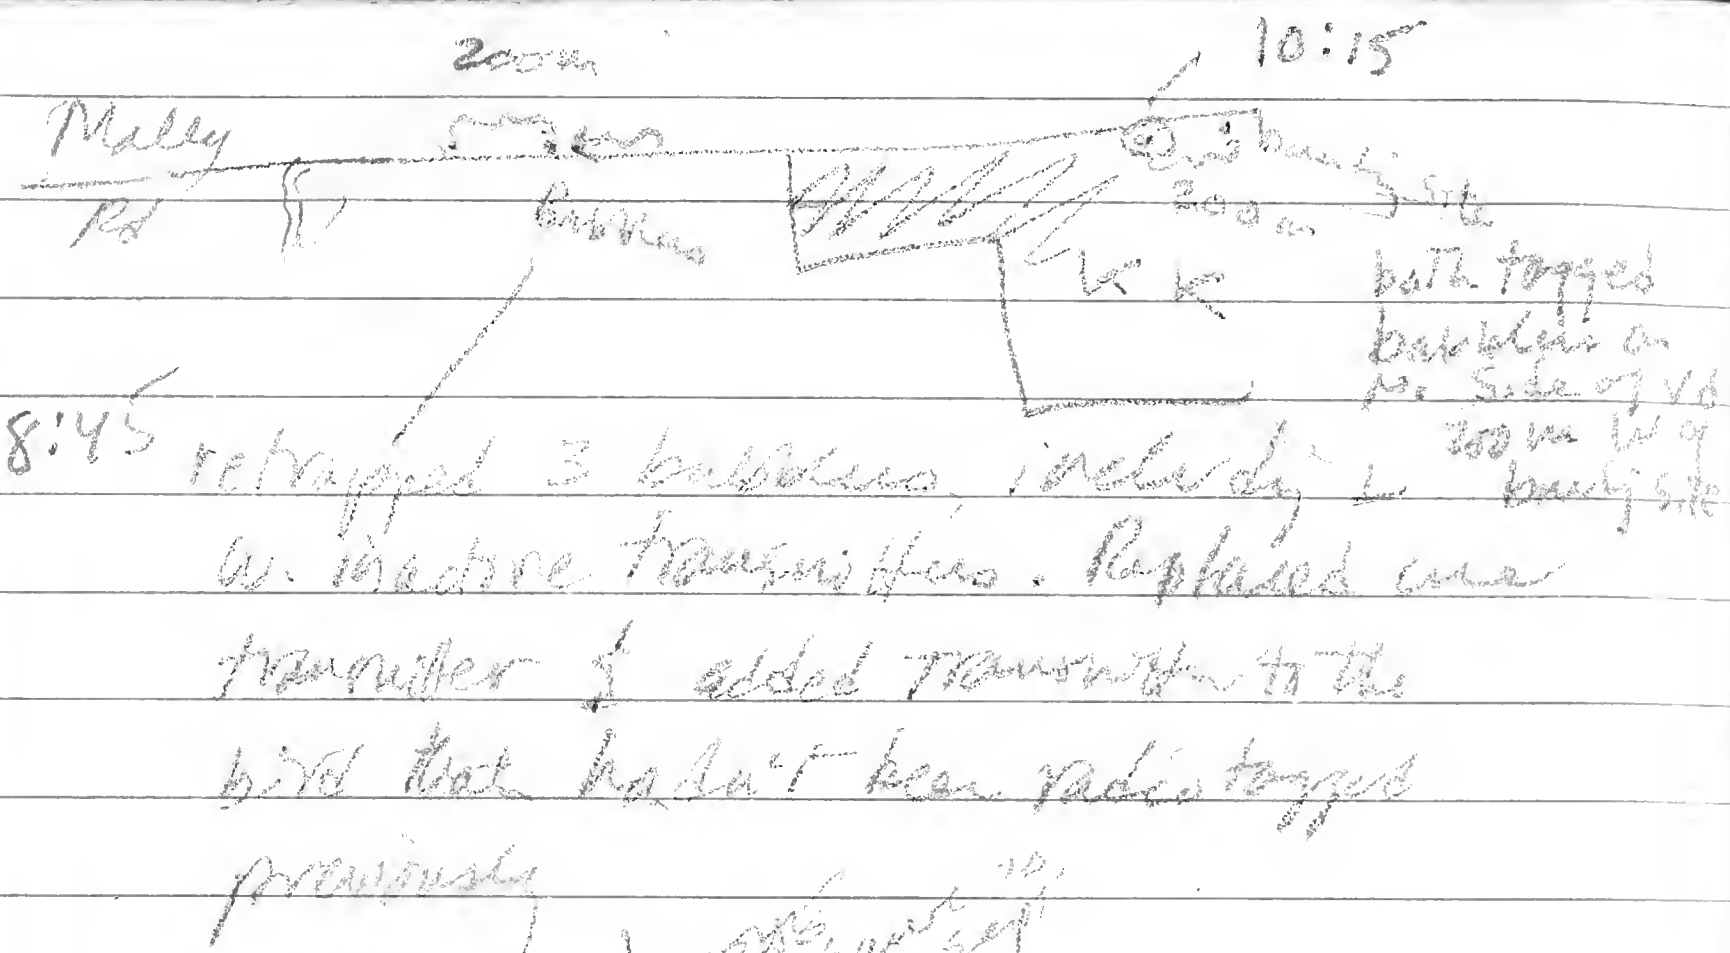 200m
10:15
Mally
Rd
banding site
300m
babblers
K K
both tagged
babblers on
side of rd
300m W of
banding site
8:45 retrapped 3 babblers, including 2
w. inactive transmitters. Replaced one
transmitter & added transmitter to the
bird that hadn't been radio tagged
previously